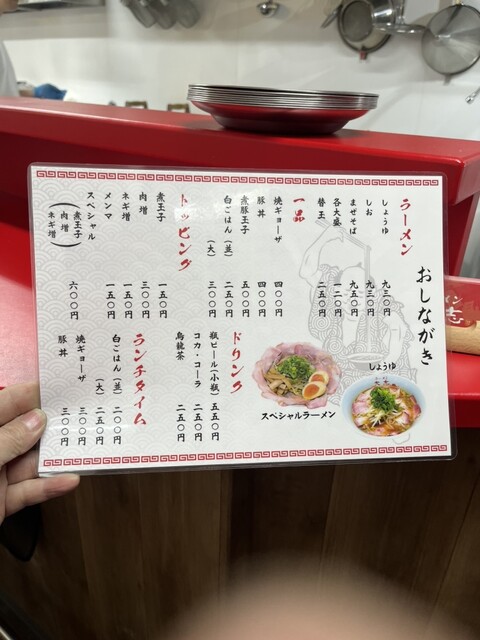 おしながき
ラーメン
しょうゆ 九三〇円
しお 九三〇円
まぜそば 九五〇円
各大盛 一二〇円
替玉 二五〇円
一品
焼ギョーザ 四〇〇円
豚丼 四〇〇円
煮豚玉子 五〇〇円
白ごはん(並) 二五〇円
(大) 三〇〇円
トッピング
煮玉子 一五〇円
肉増 三〇〇円
ネギ増 一五〇円
メンマ 一五〇円
スペシャル 六〇〇円
(煮玉子
肉増
ネギ増)
ドリンク
瓶ビール(小瓶) 五五〇円
コカ・コーラ 二五〇円
烏龍茶 二五〇円
ランチタイム
白ごはん(並) 二〇〇円
(大) 二五〇円
焼ギョーザ 三〇〇円
豚丼 三〇〇円
しょうゆ
スペシャルラーメン